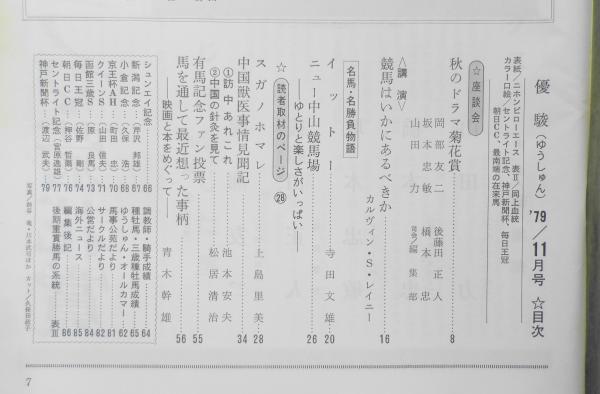 優駿（ゆうしゅん）'79／11月号 ☆目次
表紙／ニホンピロエース 表Ⅱ／同上血統
カラー口絵／セントライト記念、神戸新聞杯、毎日王冠
朝日CC、最南端の在来馬
☆座談会
秋のドラマ菊花賞 8
岡部友二 後藤田正人
坂本忠敏 橋本忠
山田力 編集部
〈講演〉
競馬はいかにあるべきか 16
カルヴィン・S・レイニー
名馬・名勝負物語
イットー 寺田文雄 20
ニュー中山競馬場 26
――ゆとりと楽しさがいっぱい――
☆読者取材のページ 28
スガノホマレ 上島里美 28
中国獣医事情見聞記 34
①訪中あれこれ 池本安夫
②中国の針灸を見て 松居清治
有馬記念ファン投票 55
馬を通して最近想った事柄 青木幹雄 56
――映画と本をめぐって――
シュンエイ記念 66
新潟記念（芹沢邦雄） 67
小倉記念（久保浩） 68
京王杯AH（町田忠） 70
クイーンS（山田信夫） 71
函館三歳S（原良馬） 73
毎日王冠（佐野剛） 74
朝日CC（押谷哲爾） 76
セントライト記念（宮原逸雄） 77
神戸新聞杯（渡辺武夫） 79
調教師・騎手成績 64
種牡馬・三歳種牡馬成績 65
ゆうしゅん・オールカマー 62
馬事公苑だより 81
サークルだより 82
公営だより 84
海外ニュース 85
編集後記 86
後期重賞勝馬の系統 表Ⅲ
7